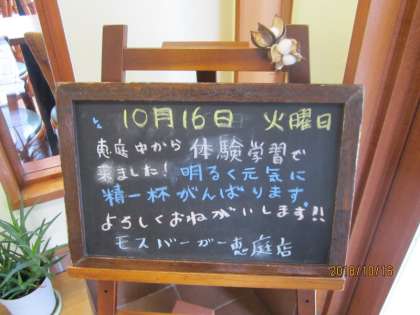 10月16日 火曜日
恵庭中から体験学習で
来ました！明るく元気に
精一杯がんばります。
よろしくおねがいします!!
モスバーガー恵庭店
2018/10/16